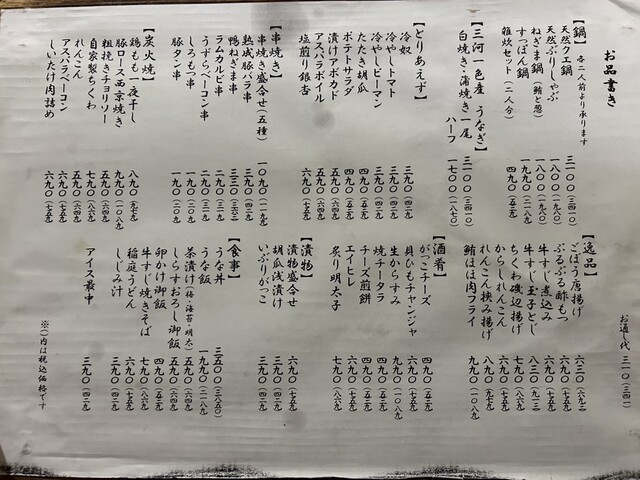 お品書き
お通し代 三一〇（三四一）
【鍋】各二人前より承ります
天然クエ鍋 三一〇〇（三四一〇）
天然ぶりしゃぶ 一八〇〇（一九八〇）
ねぎま鍋（鮪と葱） 一八〇〇（一九八〇）
すっぽん鍋
雑炊セット（二人分） 四九〇（五三九）
【三河一色産 うなぎ】
白焼き・蒲焼き 一尾 三一〇〇（三四一〇）
ハーフ 一七〇〇（一八七〇）
【とりあえず】
冷奴 三九〇（四二九）
冷やしトマト 三九〇（四二九）
冷やしピーマン 三九〇（四二九）
たたき胡瓜 四九〇（五三九）
ポテトサラダ 四九〇（五三九）
漬けアボカド 五九〇（六四九）
アスパラボイル 五九〇（六四九）
塩煎り銀杏 六九〇（七五九）
【串焼き】
串焼き盛合せ（五種） 一〇九〇（一一九九）
熟成豚バラ串
鴨ねぎま串 三三〇（三六三）
うずらベーコン串
ラムカルビ串
しろもつ串 一九〇（二〇九）
豚タン串 一九〇（二〇九）
【炭火焼】
鶏もも一夜干し 八九〇（九七九）
豚ロース西京焼き 九九〇（一〇八九）
粗挽きチョリソー
自家製ちくわ 七九〇（八六九）
れんこん 五九〇（六四九）
アスパラベーコン 六九〇（七五九）
しいたけ肉詰め 六九〇（七五九）
【逸品】
ごぼう唐揚げ 六三〇（六九三）
ぷるぷる酢もつ 六九〇（七五九）
牛すじ煮込み 六九〇（七五九）
牛すじ玉子とじ 八三〇（九一三）
ちくわ磯辺揚げ
からしれんこん
れんこん挟み揚げ
鮪ほほ肉フライ 九九〇（一〇八九）
【酒肴】
がっこチーズ 四九〇（五三九）
貝ひもチャンジャ
生からすみ 九九〇（一〇八九）
焼チータラ 四九〇（五三九）
チーズ煎餅 四九〇（五三九）
エイヒレ 六九〇（七五九）
炙り明太子 七九〇（八六九）
【漬物】
漬物盛合せ 六九〇（七五九）
胡瓜浅漬け 三九〇（四二九）
いぶりがっこ
【食事】
うな丼 三五〇〇（三八五〇）
うな飯 一九九〇（二一八九）
茶漬け（梅・海苔・明太）
しらすおろし御飯 五九〇（六四九）
卵かけ御飯 四九〇（五三九）
牛すじ焼きそば 七九〇（八六九）
稲庭うどん 六九〇（七五九）
しじみ汁 三九〇（四二九）
アイス最中 三九〇（四二九）
※（）内は税込価格です